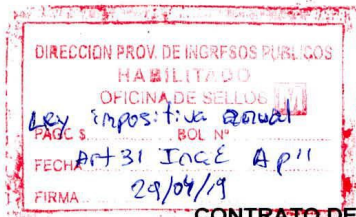 DIRECCION PROV. DE INGRESOS PUBLICOS
HABILITADO
OFICINA DE SELLOS
Ley impositiva anual
PAGC $ BOL Nº
FECHA Art 31 Inc E Ap II
FIRMA 29/04/19
CONTRATO DE